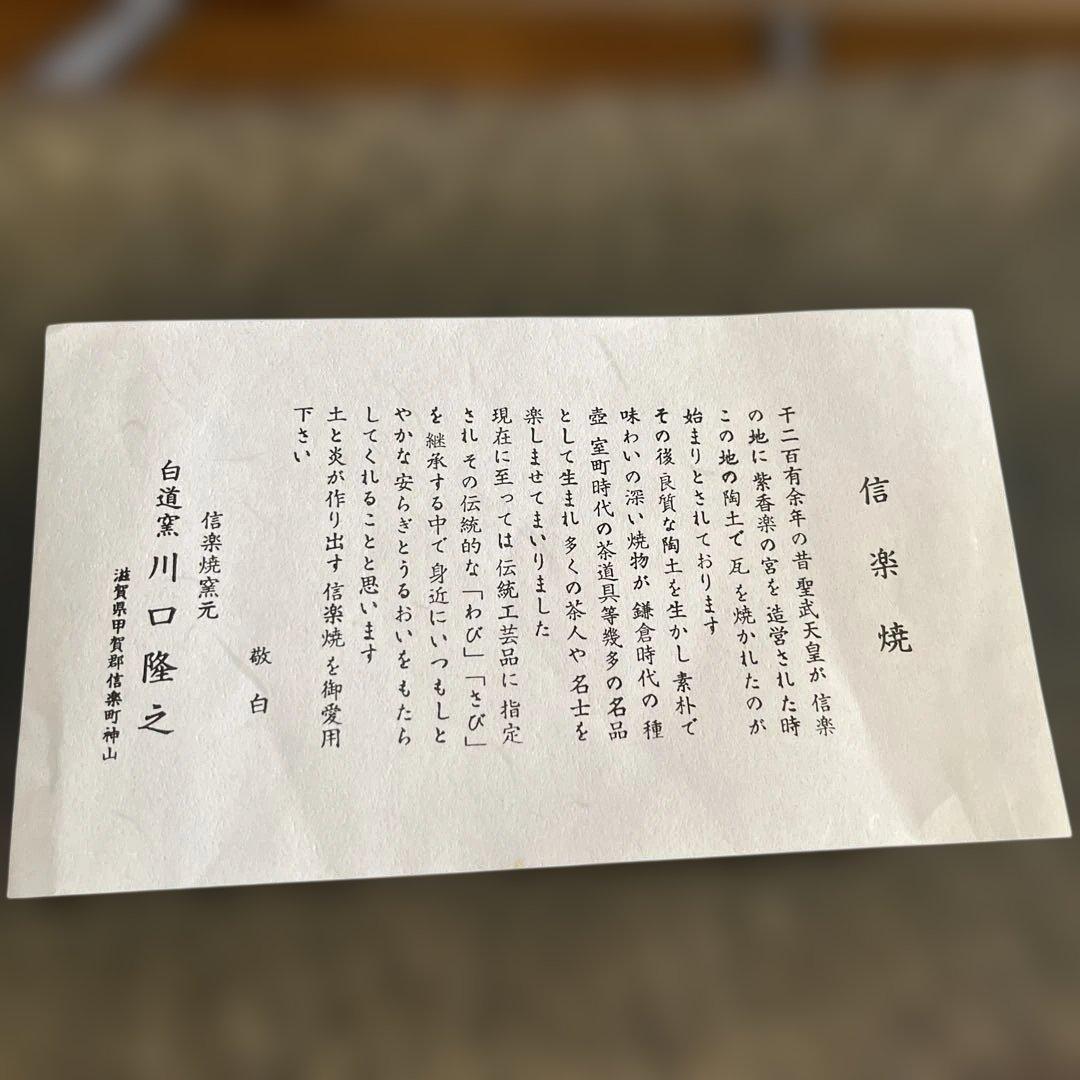 信楽焼
千二百有余年の昔 聖武天皇が 信楽
の地に 紫香楽の宮を 造営された時
この地の陶土で 瓦を焼かれたのが
始まりとされております
その後良質な陶土を生かし素朴で
味わいの深い焼物が 鎌倉時代の 種
壺 室町時代の茶道具等幾多の名品
として生まれ 多くの茶人や 名士を
楽しませてまいりました
現在に至っては 伝統工芸品に 指定
され その伝統的な「わび」「さび」
を 継承する中で 身近にいつもしと
やかな安らぎとうるおいを もたら
してくれることと思います
土と炎が作り出す 信楽焼 を御愛用
下さい
敬白
信楽焼窯元
白道窯 川口隆之
滋賀県甲賀郡信楽町神山